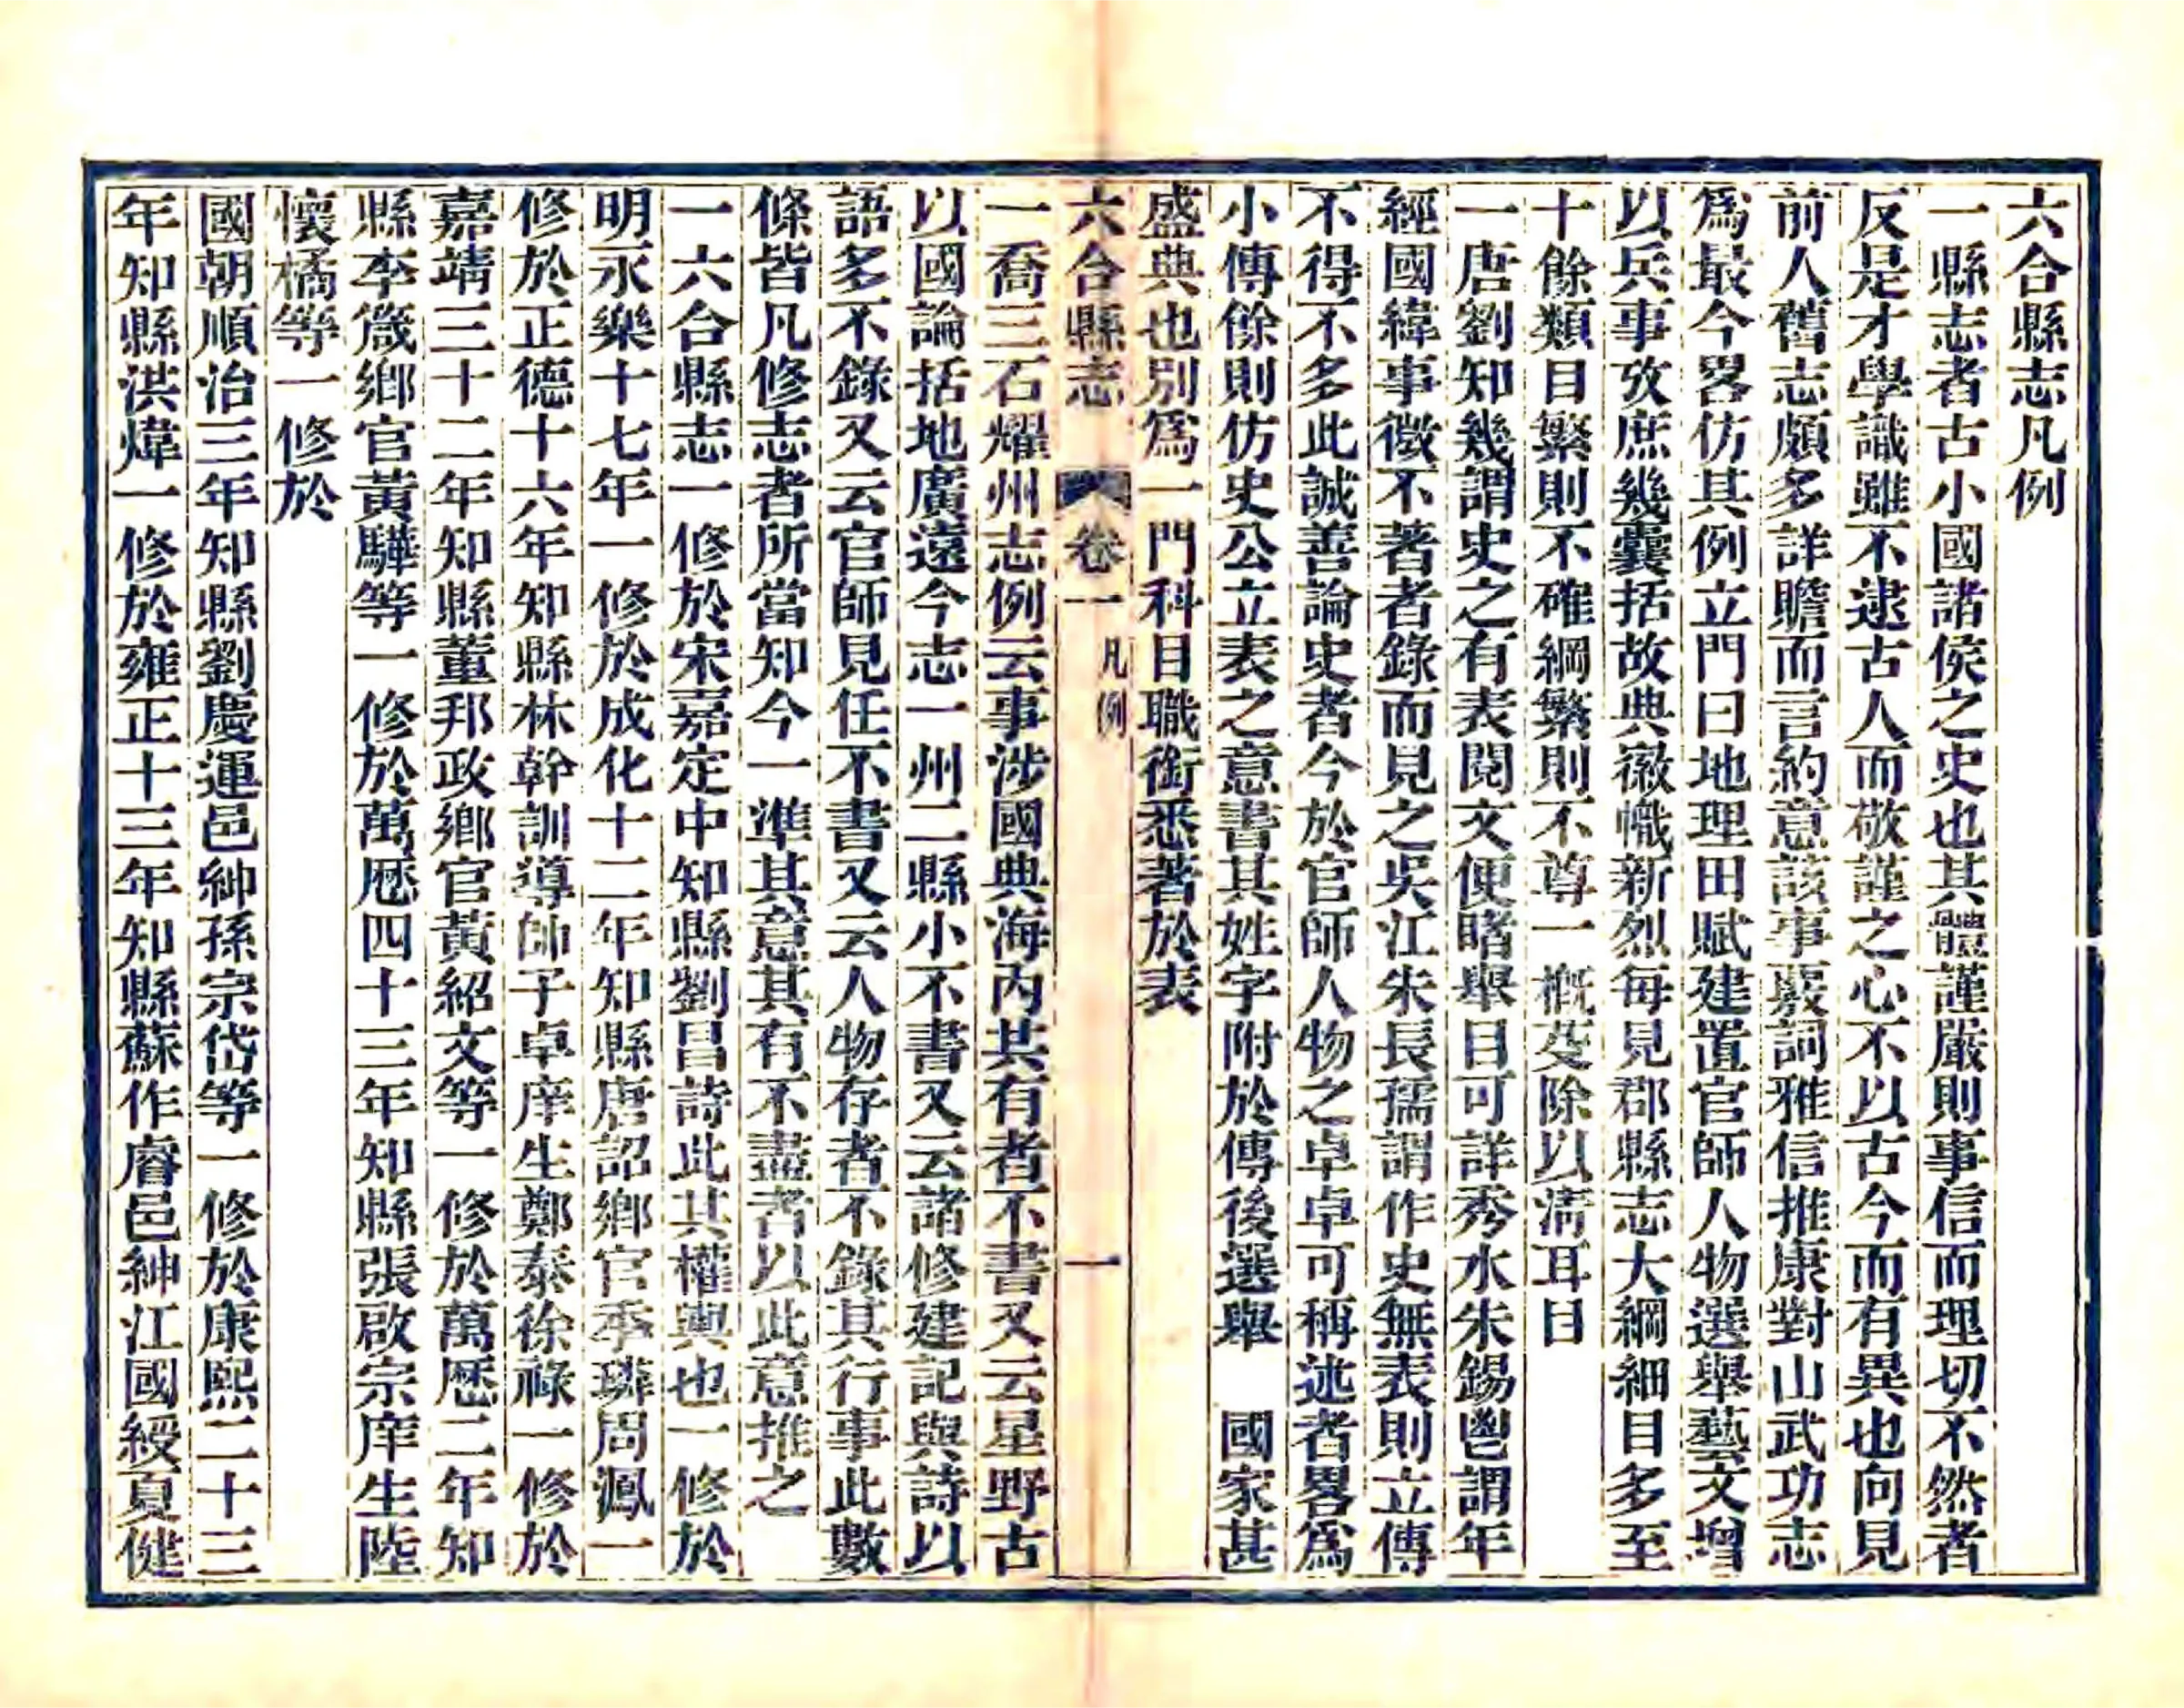 六合縣志凡例
一縣志者古小國諸侯之史也其體謹嚴則事信而理切不然者
反是才學識雖不逮古人而敬謹之心不以古今而有異也向見
前人舊志頗多詳贍而言約意該事覈詞雅信推康對山武功志
爲最今畧仿其例立門曰地理田賦建置官師人物選舉藝文增
以兵事攷庶幾囊括故典徽幟新烈每見郡縣志大綱細目多至
十餘類目繁則不確綱繁則不尊一槪芟除以淸耳目
一唐劉知幾謂史之有表閱文便睹舉目可詳秀水朱錫鬯謂年
經國緯事徵不著者錄而見之吳江朱長孺謂作史無表則立傳
不得不多此誠善論史者今於官師人物之卓卓可稱述者畧爲
小傳餘則仿史公立表之意書其姓字附於傳後選舉　國家甚
盛典也別爲一門科目職銜悉著於表
六合縣志　卷一　凡例　一
一喬三石耀州志例云事涉國典海內共有者不書又云星野古
以國論括地廣遠今志一州二縣小不書又云諸修建記與詩以
語多不錄又云官師見任不書又云人物存者不錄其行事此數
條皆凡修志者所當知今一準其意其有不盡者以此意推之
一六合縣志一修於宋嘉定中知縣劉昌詩此其權輿也一修於
明永樂十七年一修於成化十二年知縣唐詔鄉官季璘周瀛一
修於正德十六年知縣林幹訓導帥子卓庠生鄭泰徐祿一修於
嘉靖三十二年知縣董邦政鄉官黃紹文等一修於萬歷二年知
縣李箴鄉官黃驊等一修於萬歷四十三年知縣張啟宗庠生陸
懷橘等一修於
國朝順治三年知縣劉慶運邑紳孫宗岱等一修於康熙二十三
年知縣洪煒一修於雍正十三年知縣蘇作睿邑紳江國綬夏健